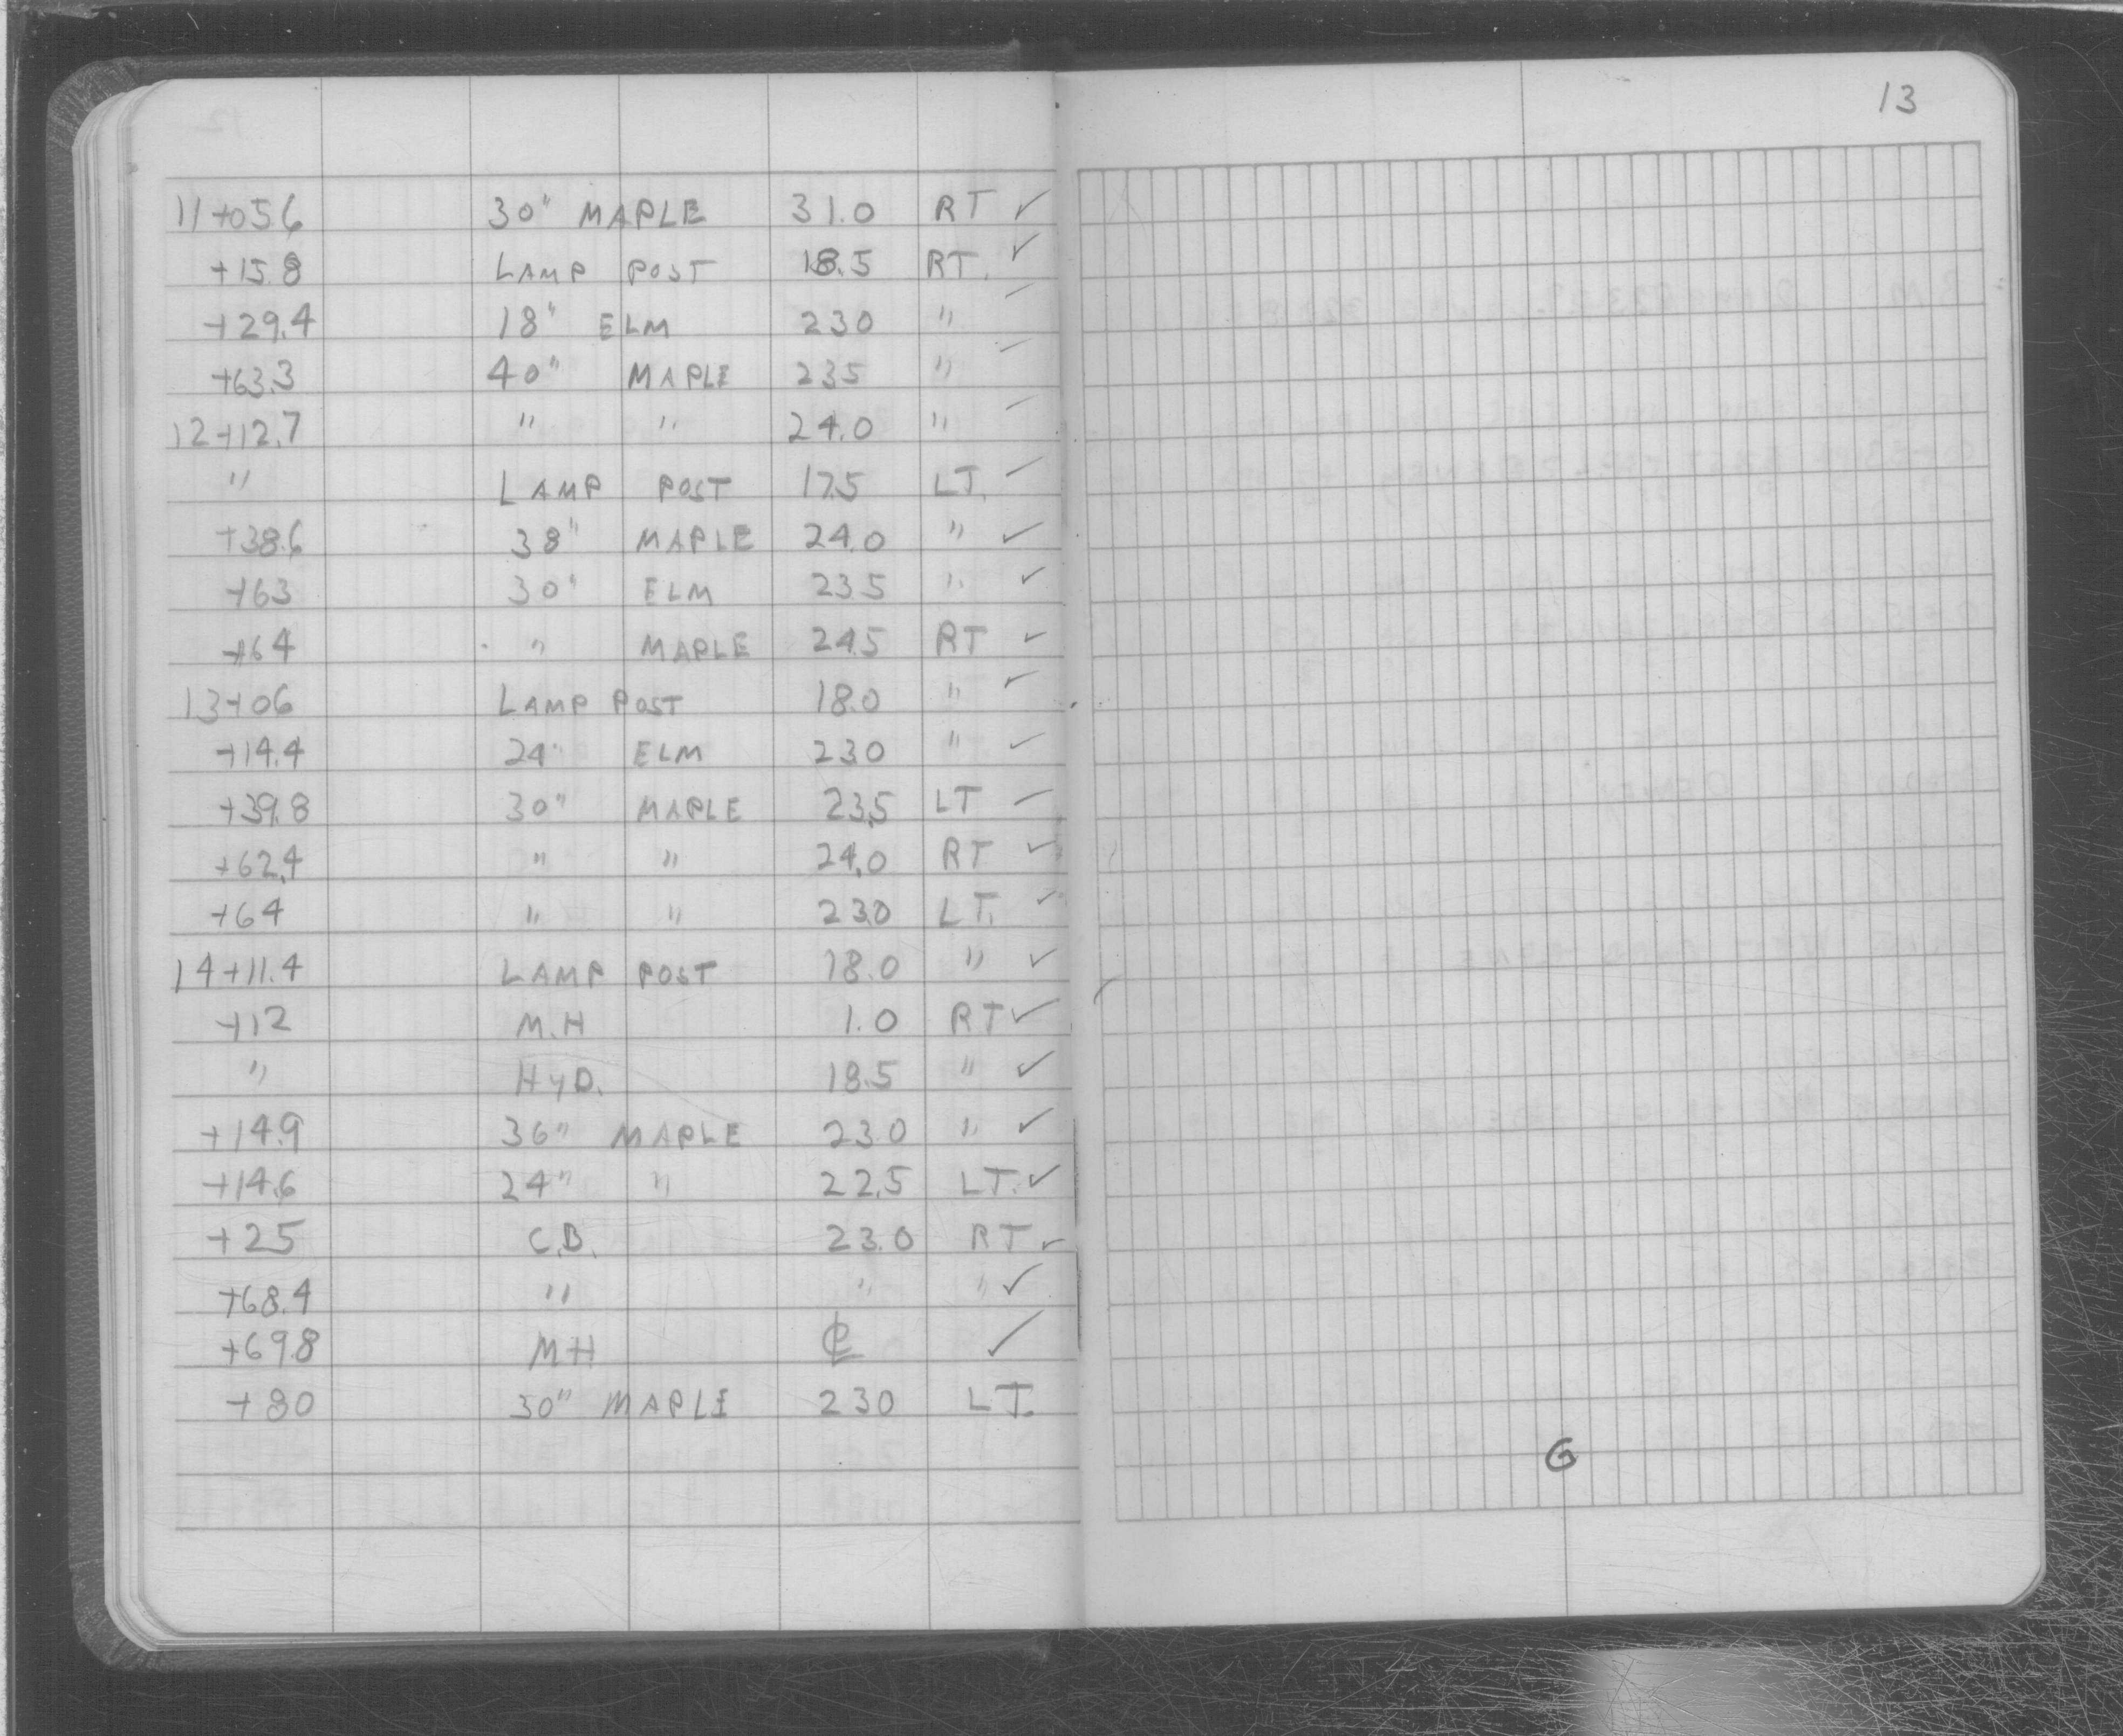 13
11+05.6 30" MAPLE 31.0 RT ✓
+15.8 LAMP POST 18.5 RT. ✓
+29.4 18" ELM 230 " ✓
+63.3 40" MAPLE 235 " ✓
12+12.7 " " 24.0 " ✓
" LAMP POST 17.5 LT. ✓
+38.6 38" MAPLE 24.0 " ✓
+63 30" ELM 23.5 " ✓
+64 " MAPLE 24.5 RT ✓
13+06 LAMP POST 18.0 " ✓
+14.4 24" ELM 23.0 " ✓
+39.8 30" MAPLE 23.5 LT ✓
+62.4 " " 24.0 RT ✓
+64 " " 23.0 LT. ✓
14+11.4 LAMP POST 18.0 " ✓
+12 M.H 1.0 RT ✓
" HYD. 18.5 " ✓
+14.9 36" MAPLE 23.0 " ✓
+14.6 24" " 22.5 LT. ✓
+25 C.B. 23.0 RT ✓
+68.4 " " " ✓
+69.8 MH ℄ ✓
+80 30" MAPLE 230 LT.
G